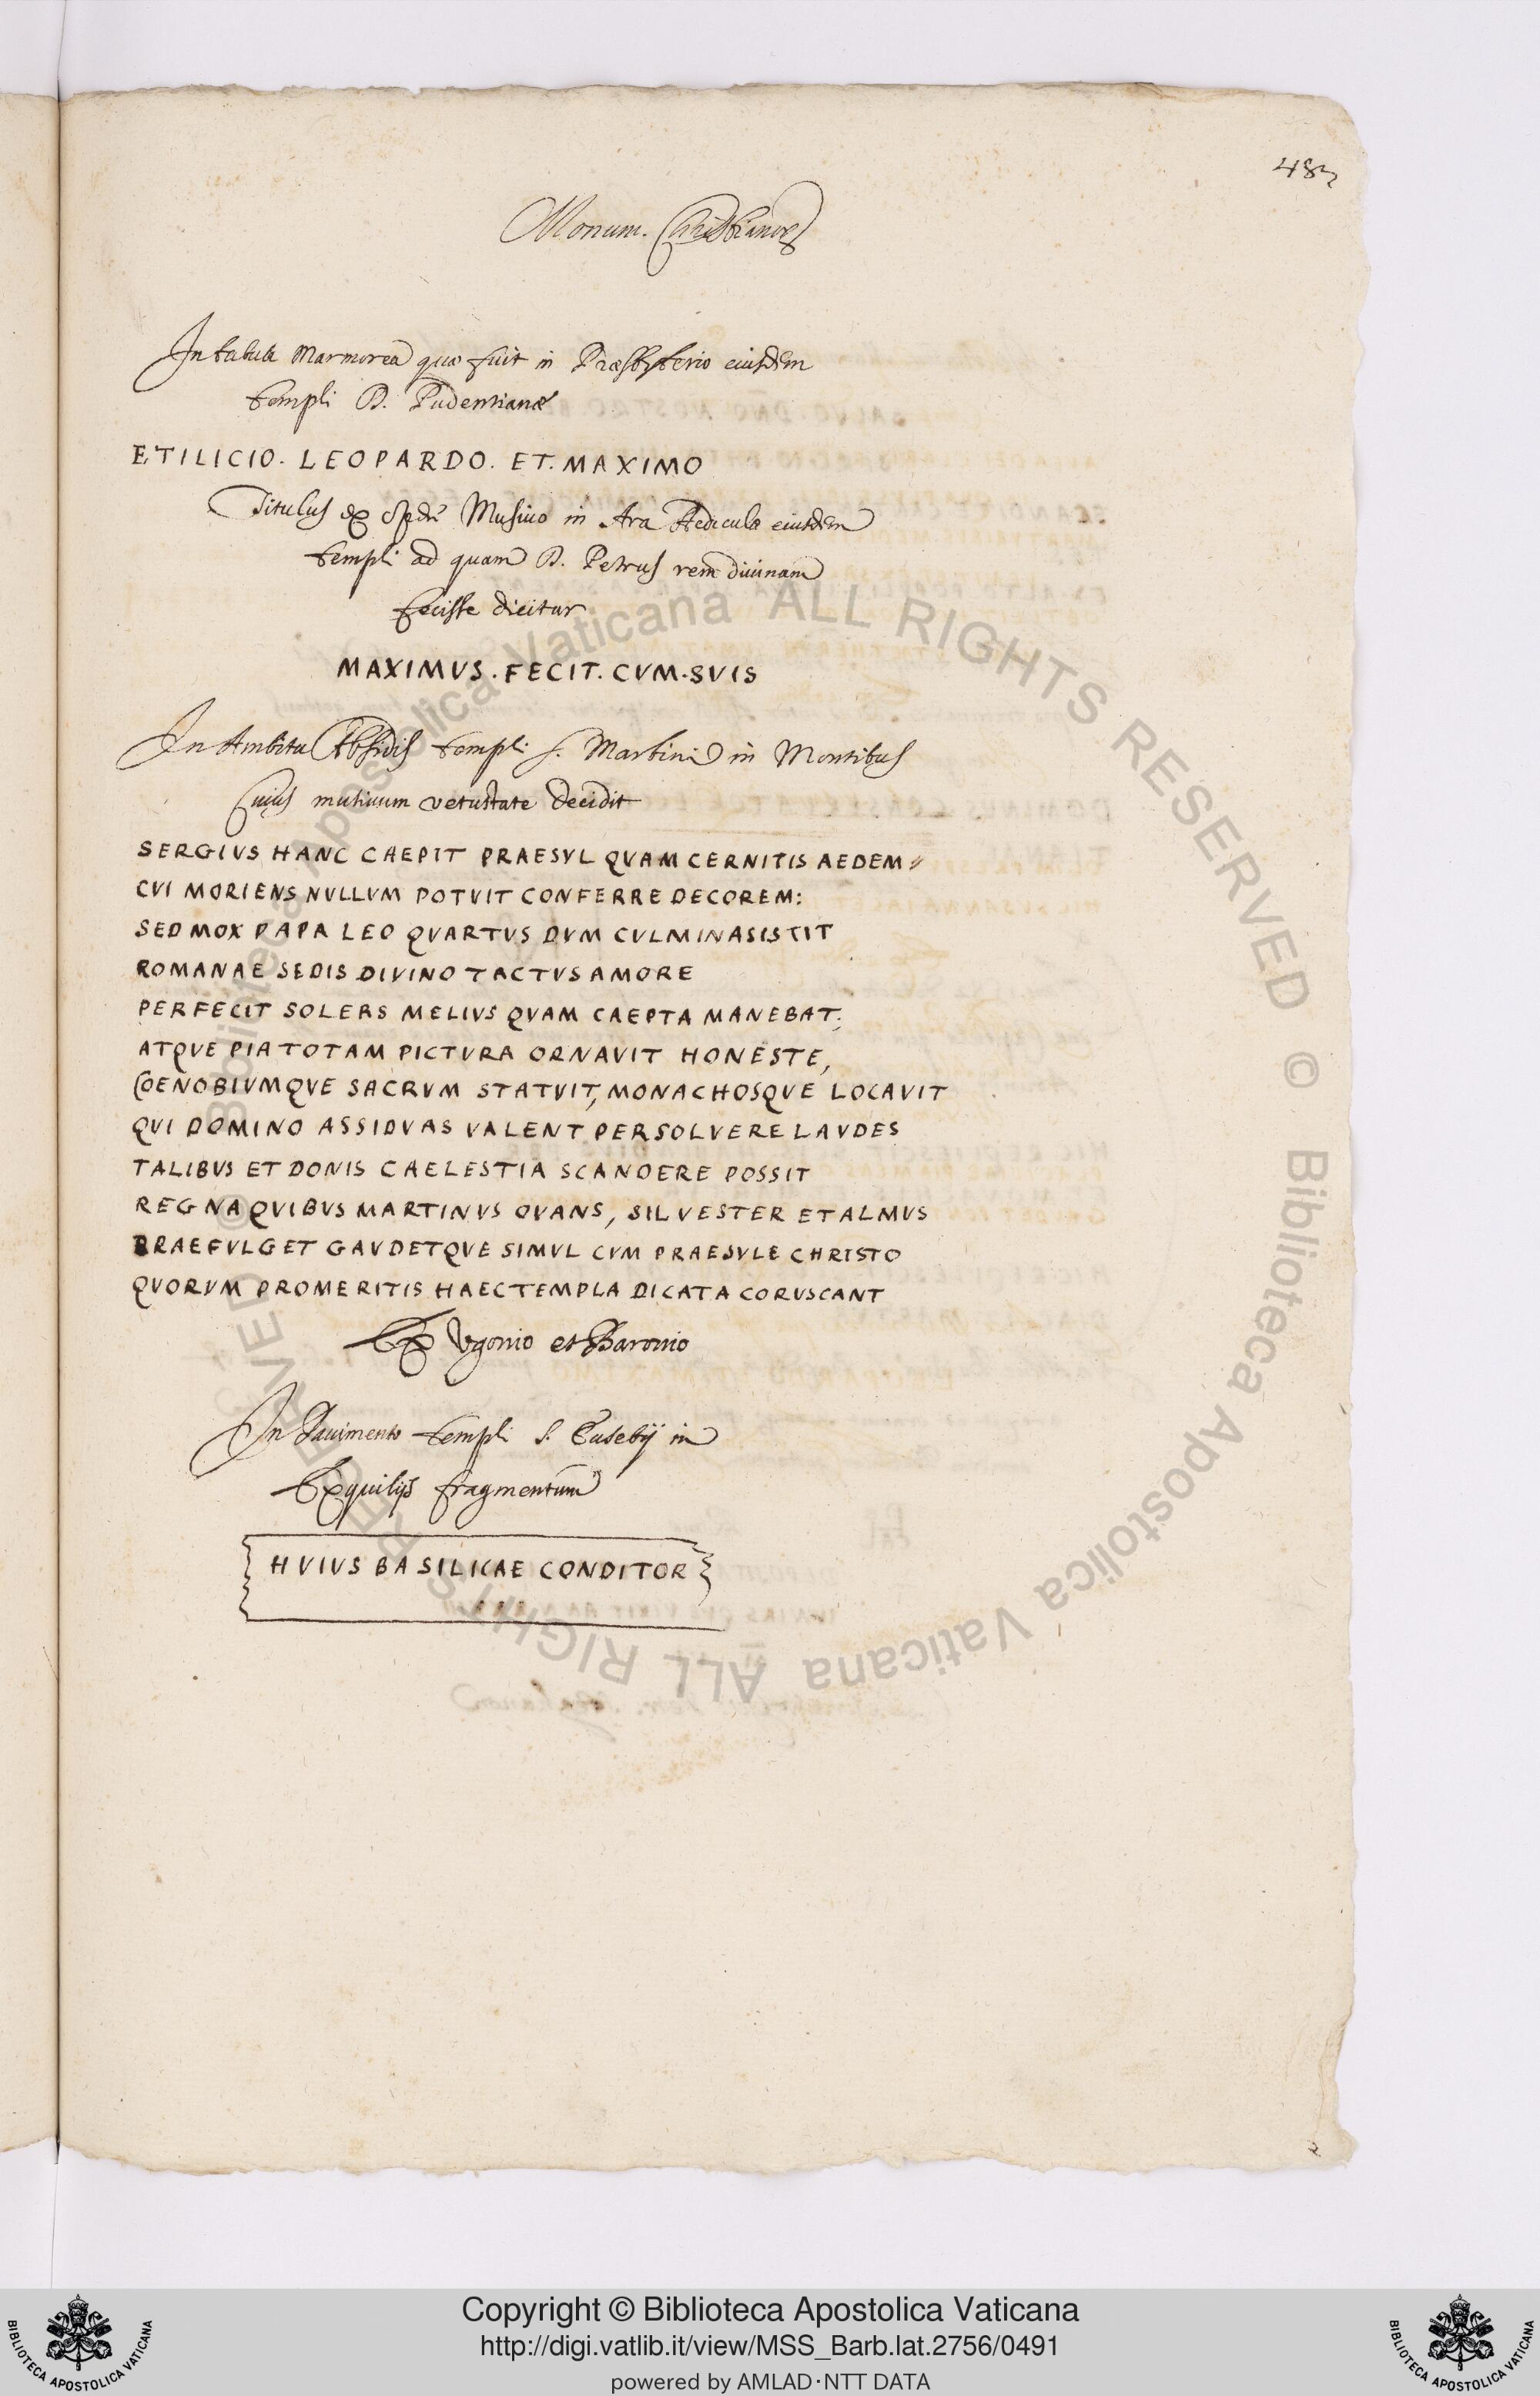 483
Monum. Christianor
In tabula Marmorea quæ fuit in Præsbyterio eiusdem
templi D. Pudentianæ
ETILICIO. LEOPARDO. ET. MAXIMO
Titulus ex Musiuo in Ara Ædiculæ eiusdem
templi ad quam D. Petrus rem diuinam
fecisse dicitur
MAXIMVS. FECIT. CVM. SVIS
In Ambitu Absidis templi S. Martini in Montibus
Cuius musiuum vetustate decidit
SERGIVS HANC CAEPIT PRAESVL QVAM CERNITIS AEDEM
CVI MORIENS NVLLVM POTVIT CONFERRE DECOREM:
SED MOX PAPA LEO QVARTVS DVM CVLMINA SISTIT
ROMANAE SEDIS DIVINO TACTVS AMORE
PERFECIT SOLERS MELIVS QVAM CAEPTA MANEBAT;
ATQVE PIA TOTAM PICTVRA ORNAVIT HONESTE,
COENOBIVMQVE SACRVM STATVIT, MONACHOSQVE LOCAVIT
QVI DOMINO ASSIDVAS VALENT PERSOLVERE LAVDES
TALIBVS ET DONIS CAELESTIA SCANDERE POSSIT
REGNA QVIBVS MARTINVS OVANS, SILVESTER ET ALMVS
PRAEFVLGET GAVDETQVE SIMVL CVM PRAESVLE CHRISTO
QVORVM PRO MERITIS HAEC TEMPLA DICATA CORVSCANT
Ex Vgonio et Baronio
In Pauimento templi S. Eusebij in
Exquilijs fragmentum
HVIVS BASILICAE CONDITOR
Biblioteca Apostolica Vaticana ALL RIGHTS RESERVED © Biblioteca Apostolica Vaticana ALL RIGHTS RESERVED ©
Copyright © Biblioteca Apostolica Vaticana
http://digi.vatlib.it/view/MSS_Barb.lat.2756/0491
powered by AMLAD·NTT DATA
BIBLIOTECA APOSTOLICA VATICANA
BIBLIOTECA APOSTOLICA VATICANA